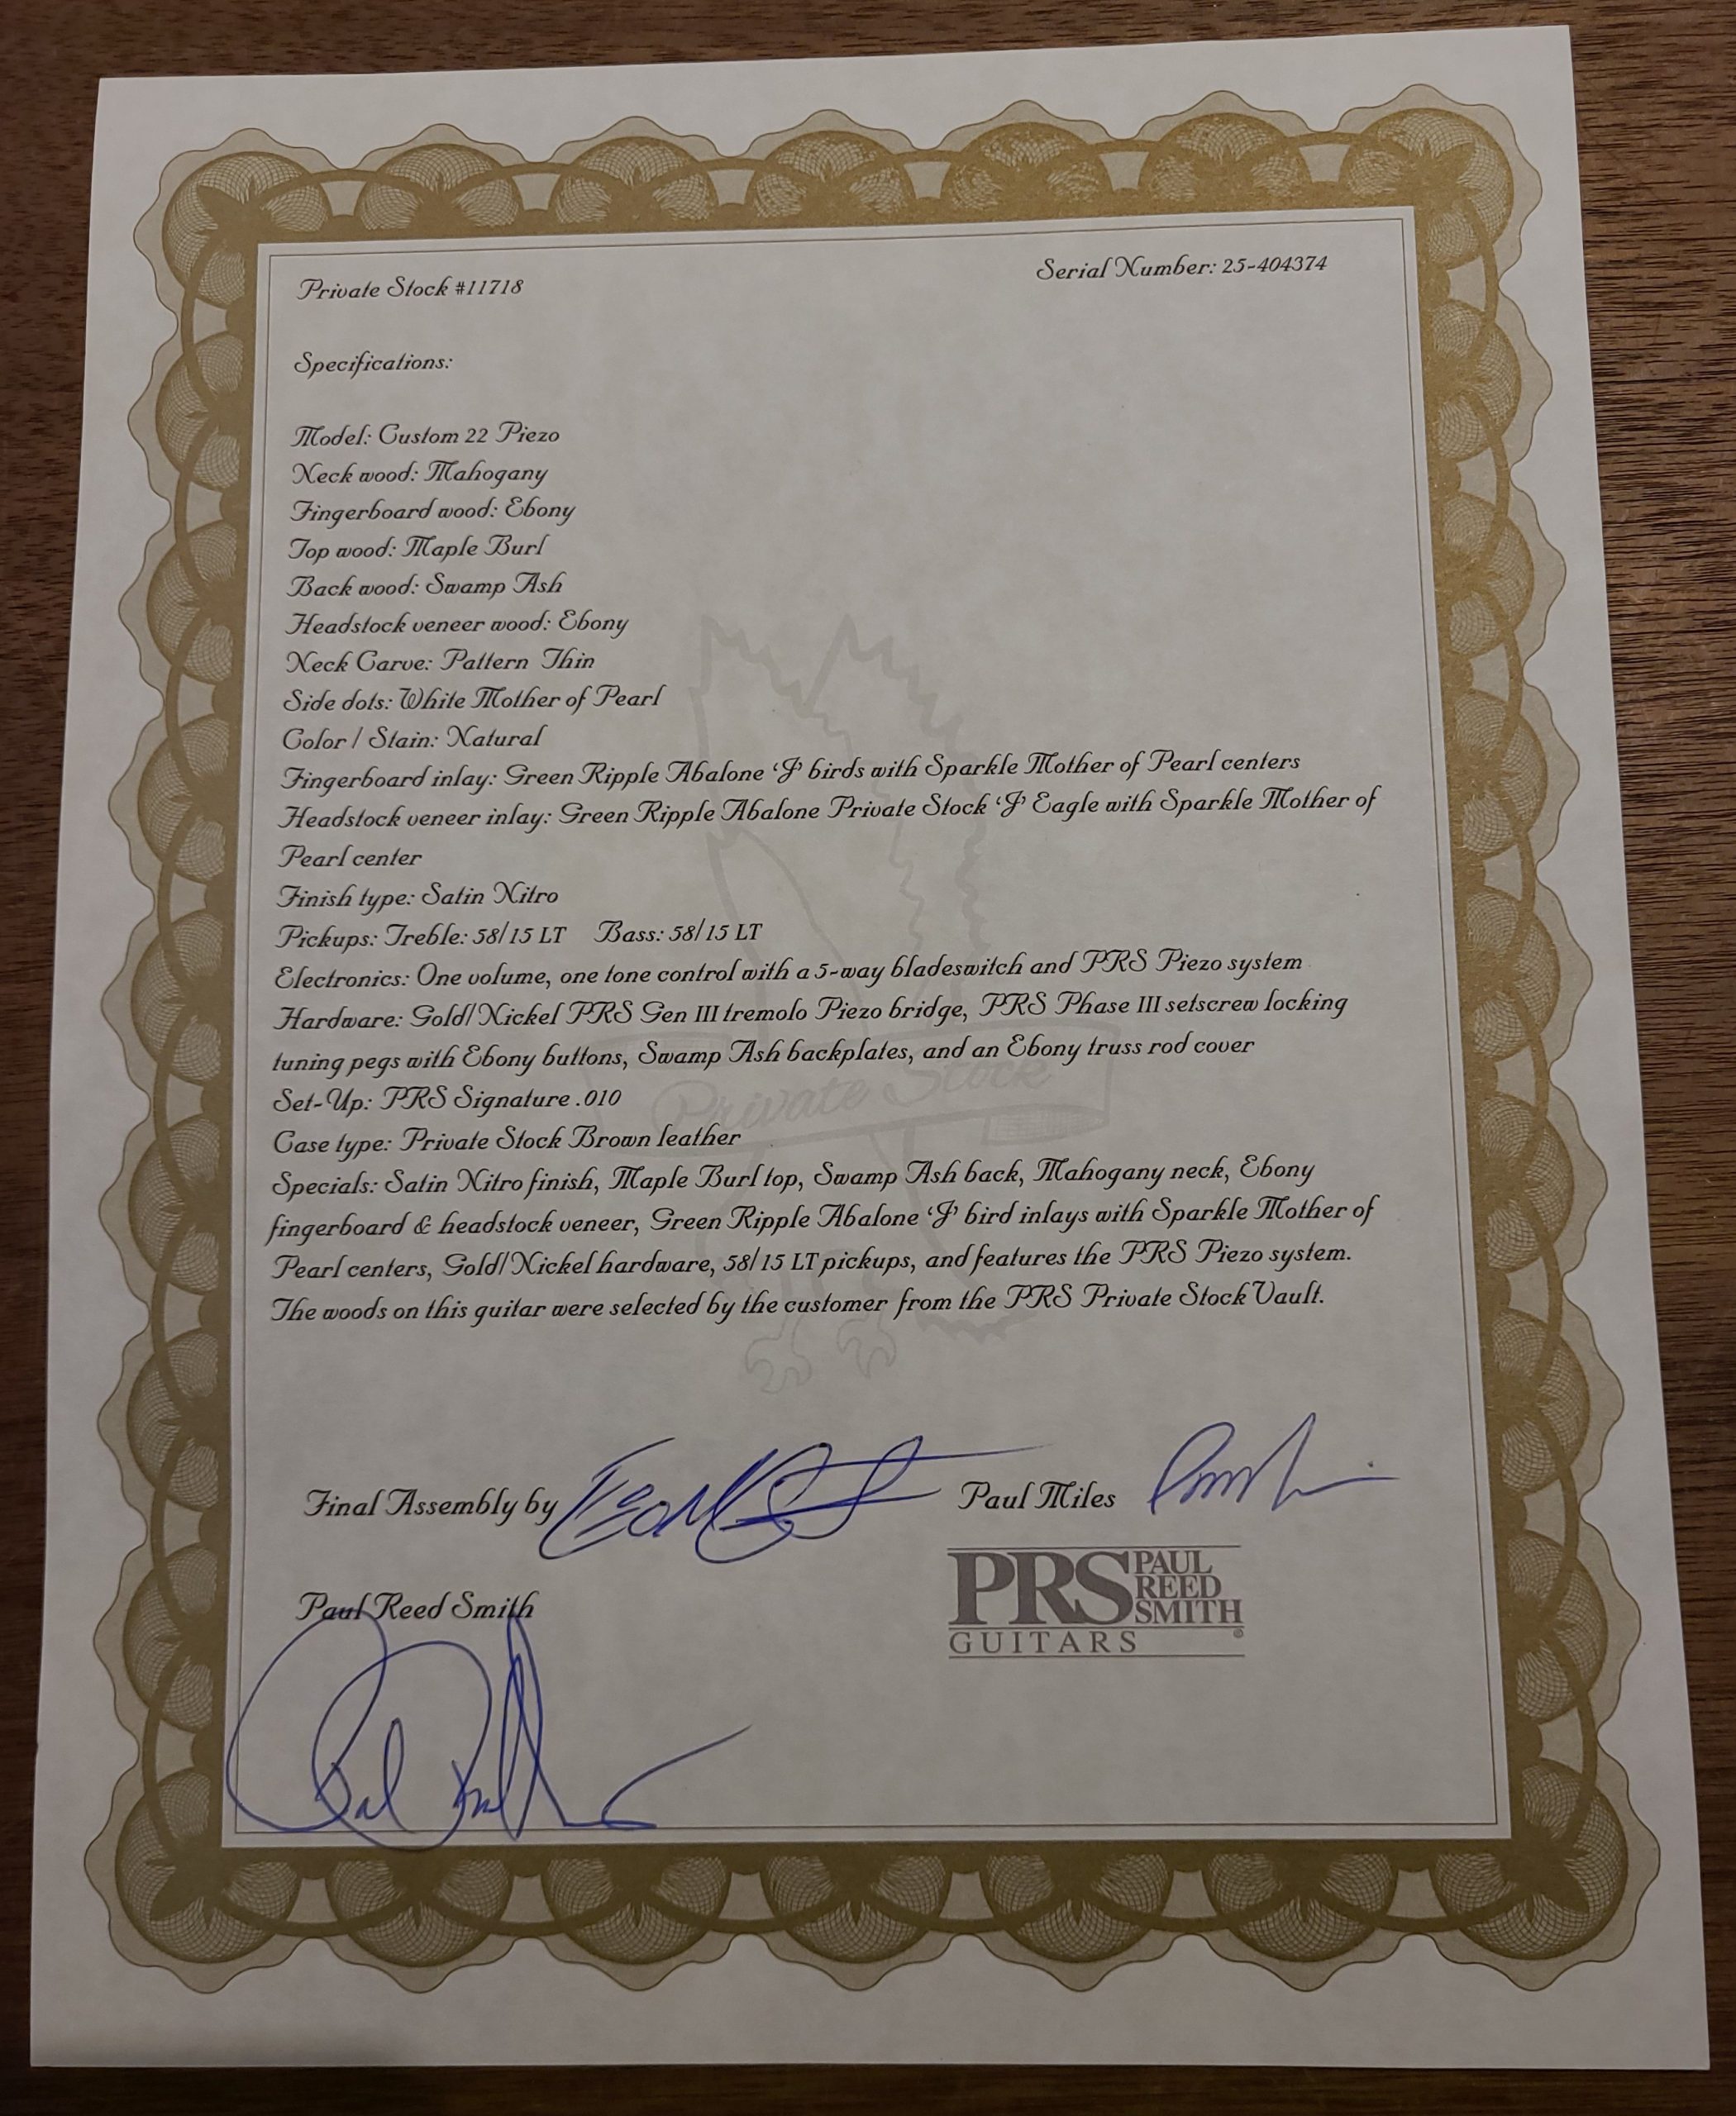 Private Stock #11718
Serial Number: 25-404374
Specifications:
Model: Custom 22 Piezo
Neck wood: Mahogany
Fingerboard wood: Ebony
Top wood: Maple Burl
Back wood: Swamp Ash
Headstock veneer wood: Ebony
Neck Carve: Pattern Thin
Side dots: White Mother of Pearl
Color / Stain: Natural
Fingerboard inlay: Green Ripple Abalone ‘J’ birds with Sparkle Mother of Pearl centers
Headstock veneer inlay: Green Ripple Abalone Private Stock ‘J’ Eagle with Sparkle Mother of
Pearl center
Finish type: Satin Nitro
Pickups: Treble: 58/15 LT Bass: 58/15 LT
Electronics: One volume, one tone control with a 5-way bladeswitch and PRS Piezo system
Hardware: Gold/Nickel PRS Gen III tremolo Piezo bridge, PRS Phase III setscrew locking
tuning pegs with Ebony buttons, Swamp Ash backplates, and an Ebony truss rod cover
Private Stock
Set-Up: PRS Signature .010
Case type: Private Stock Brown leather
Specials: Satin Nitro finish, Maple Burl top, Swamp Ash back, Mahogany neck, Ebony
fingerboard & headstock veneer, Green Ripple Abalone ‘J’ bird inlays with Sparkle Mother of
Pearl centers, Gold/Nickel hardware, 58/15 LT pickups, and features the PRS Piezo system.
The woods on this guitar were selected by the customer from the PRS Private Stock Vault.
Final Assembly by
Paul Miles
Paul Reed Smith
PRS PAUL REED SMITH
GUITARS ®